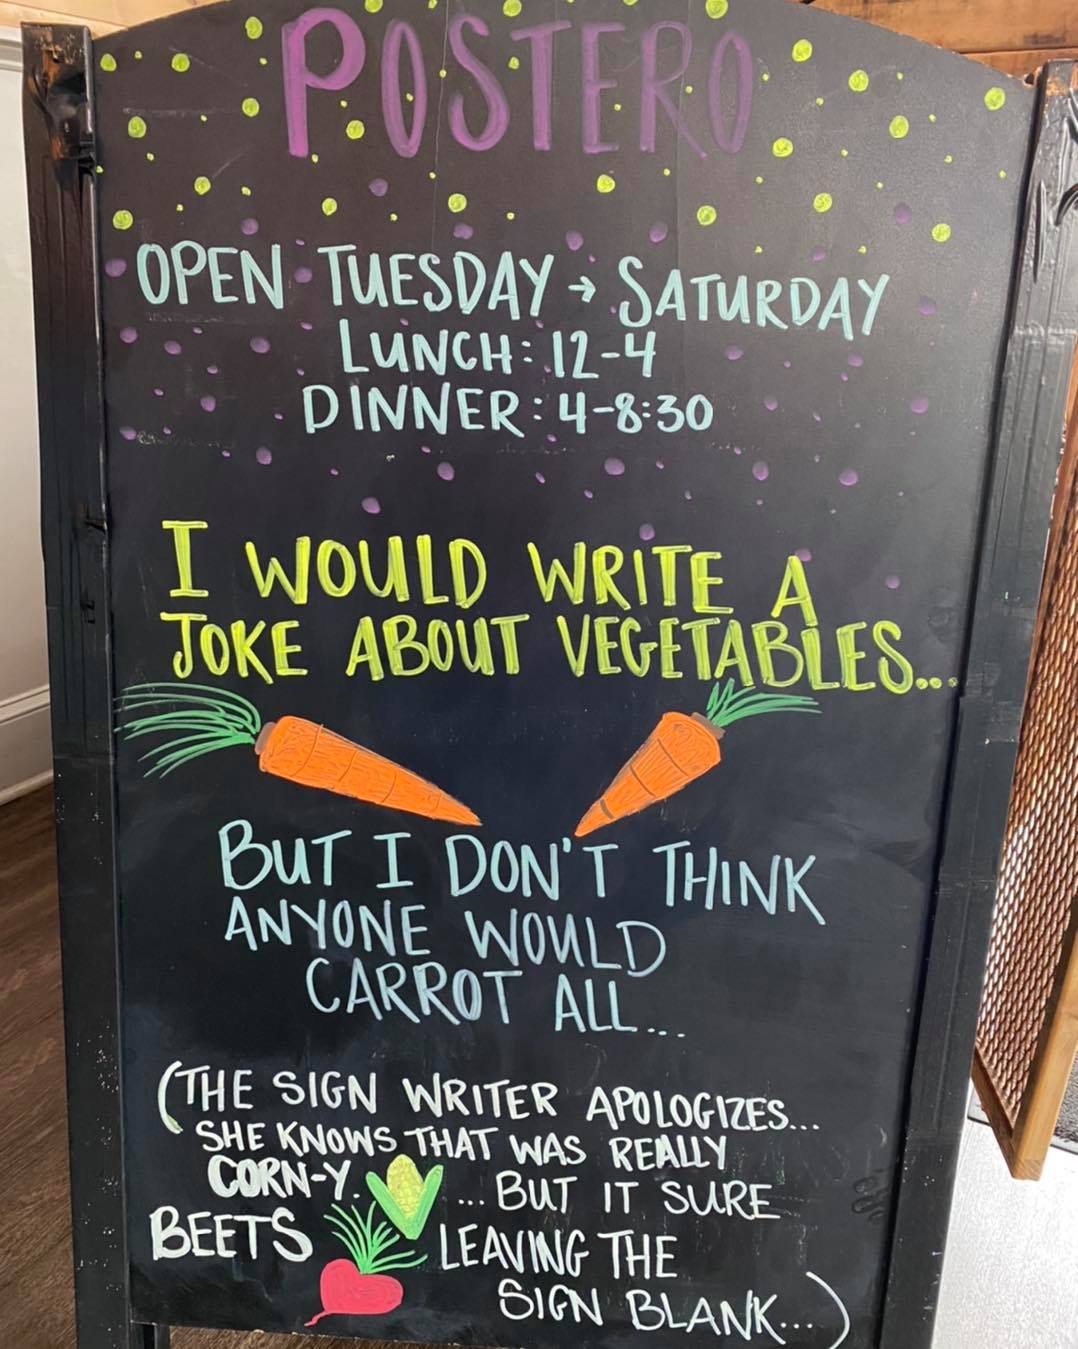 POSTERO
OPEN TUESDAY → SATURDAY
LUNCH: 12-4
DINNER: 4-8:30
I WOULD WRITE A
JOKE ABOUT VEGETABLES...
BUT I DON'T THINK
ANYONE WOULD
CARROT ALL...
(THE SIGN WRITER APOLOGIZES...
SHE KNOWS THAT WAS REALLY
CORN-Y. ...BUT IT SURE
BEETS LEAVING THE
SIGN BLANK...)